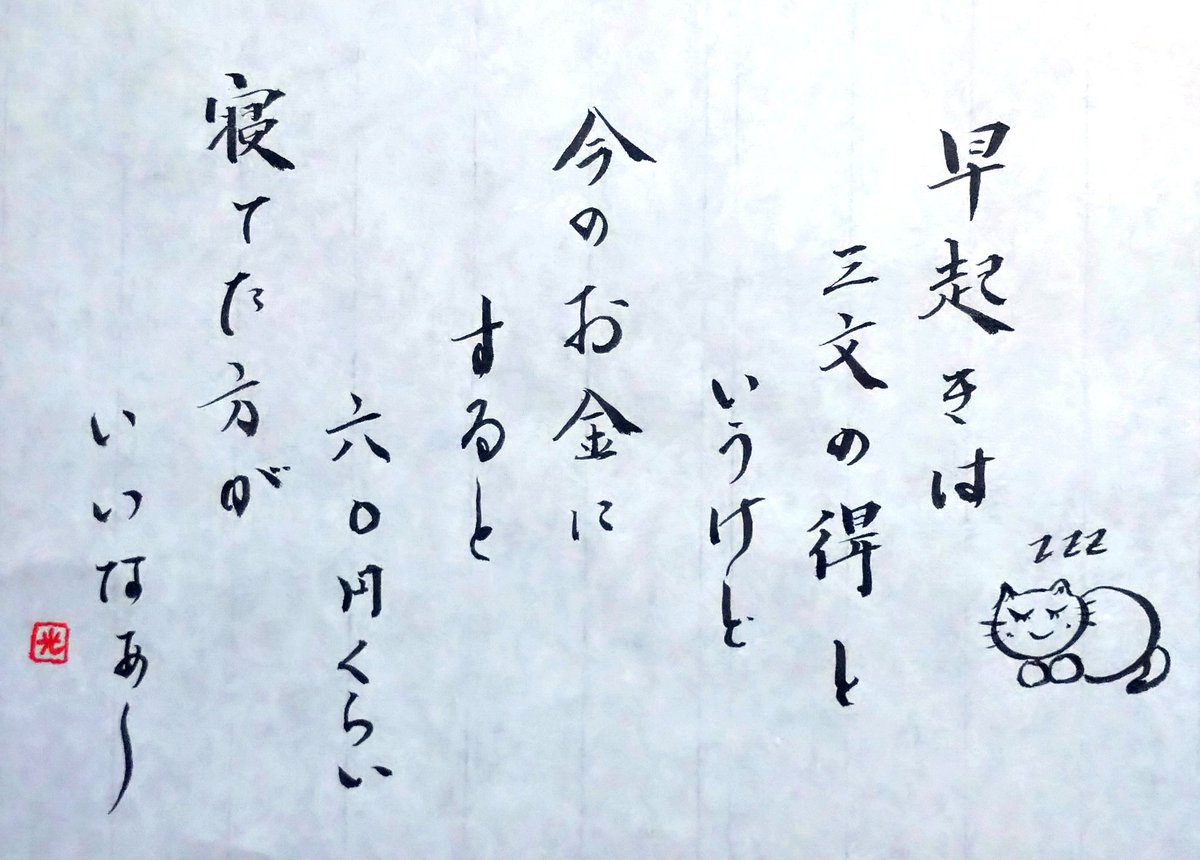 早起きは
三文の得と
いうけど
今のお金に
すると
六〇円くらい
寝てた方が
いいなあー
zzz
光